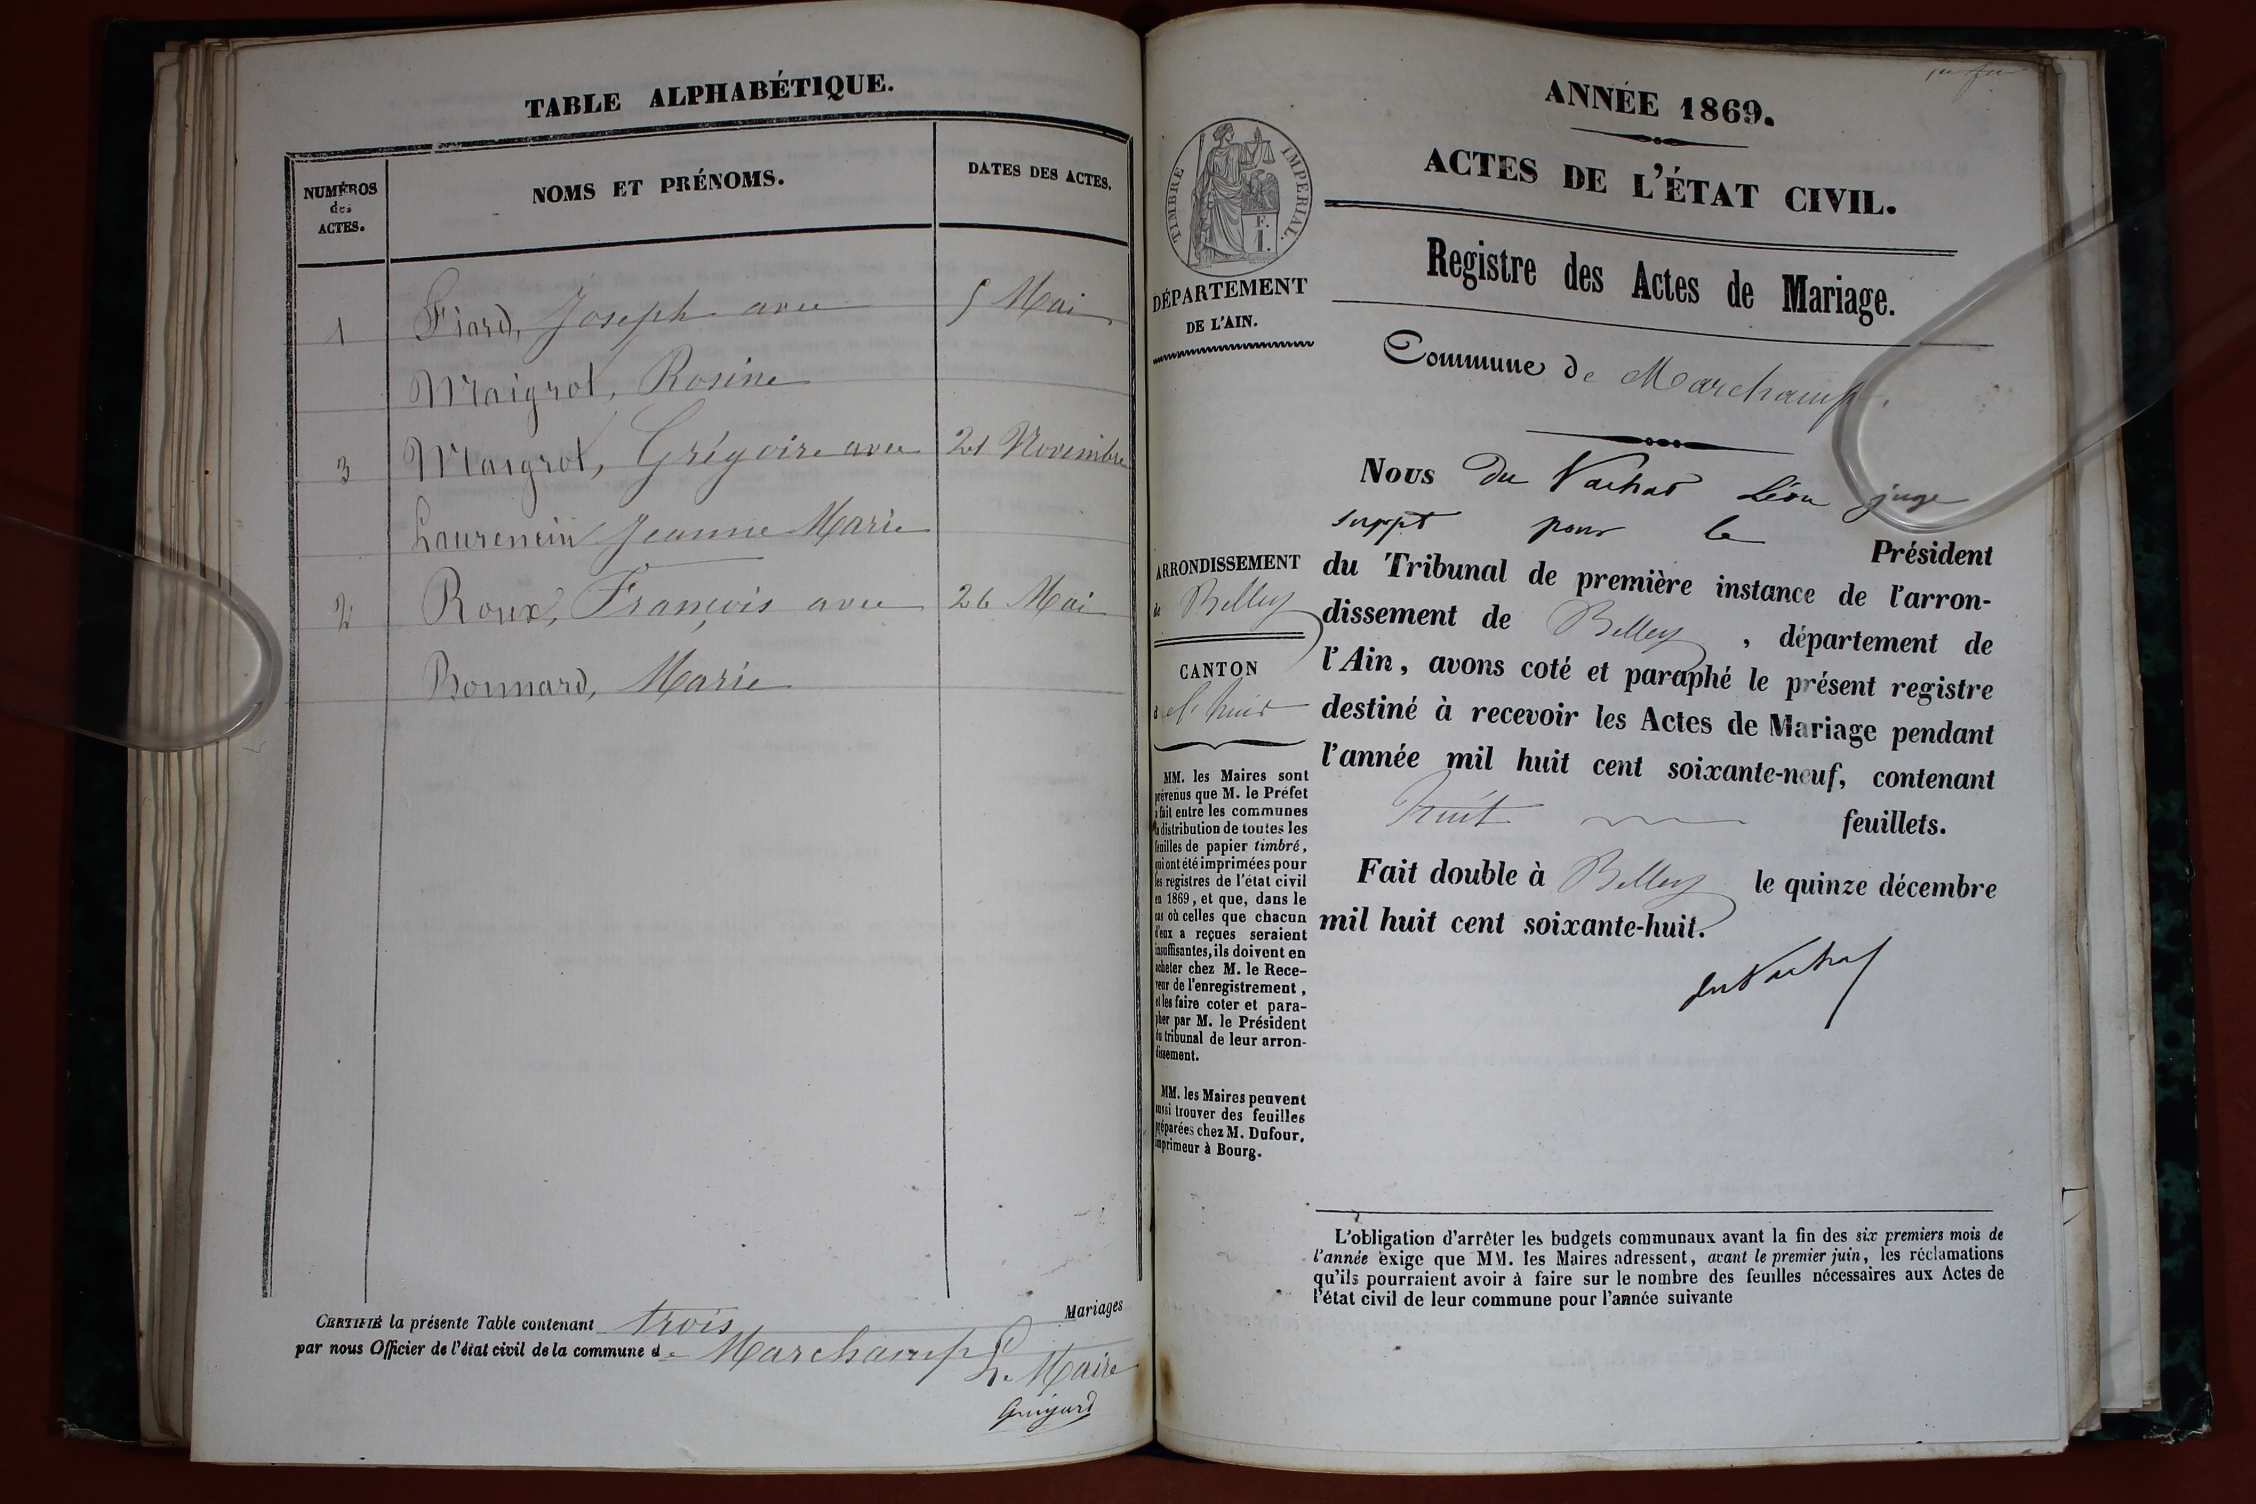 TABLE ALPHABÉTIQUE.
NUMÉROS des ACTES.
NOMS ET PRÉNOMS.
DATES DES ACTES.
1 Fiard, Joseph avec 5 Mai
Maigrot, Rosine
3 Maigrot, Grégoire avec 21 Novembre
Laurencin Jeanne Marie
2 Roux, François avec 26 Mai
Bonnard, Marie
CERTIFIÉ la présente Table contenant trois Mariages
par nous Officier de l'état civil de la commune de Marchamp
Le Maire
Guigard
ANNÉE 1869.
ACTES DE L'ÉTAT CIVIL.
TIMBRE IMPERIAL.
F.
I.
Registre des Actes de Mariage.
DÉPARTEMENT
DE L'AIN.
Commune de Marchamp.
Nous du Vachat Léon juge
suppt pour le Président
du Tribunal de première instance de l'arron-
dissement de Belley, département de
l'Ain, avons coté et paraphé le présent registre
destiné à recevoir les Actes de Mariage pendant
l'année mil huit cent soixante-neuf, contenant
huit feuillets.
Fait double à Belley le quinze décembre
mil huit cent soixante-huit.
du Vachat
ARRONDISSEMENT
de Belley
CANTON
MM. les Maires sont
prévenus que M. le Préfet
a fait entre les communes
la distribution de toutes les
feuilles de papier timbré,
qui ont été imprimées pour
les registres de l'état civil
en 1869, et que, dans le
cas où celles que chacun
d'eux a reçues seraient
insuffisantes, ils doivent en
acheter chez M. le Rece-
veur de l'enregistrement,
et les faire coter et para-
pher par M. le Président
du tribunal de leur arron-
dissement.
MM. les Maires peuvent
aussi trouver des feuilles
préparées chez M. Dufour,
imprimeur à Bourg.
L'obligation d'arrêter les budgets communaux avant la fin des six premiers mois de
l'année exige que MM. les Maires adressent, avant le premier juin, les réclamations
qu'ils pourraient avoir à faire sur le nombre des feuilles nécessaires aux Actes de
l'état civil de leur commune pour l'année suivante